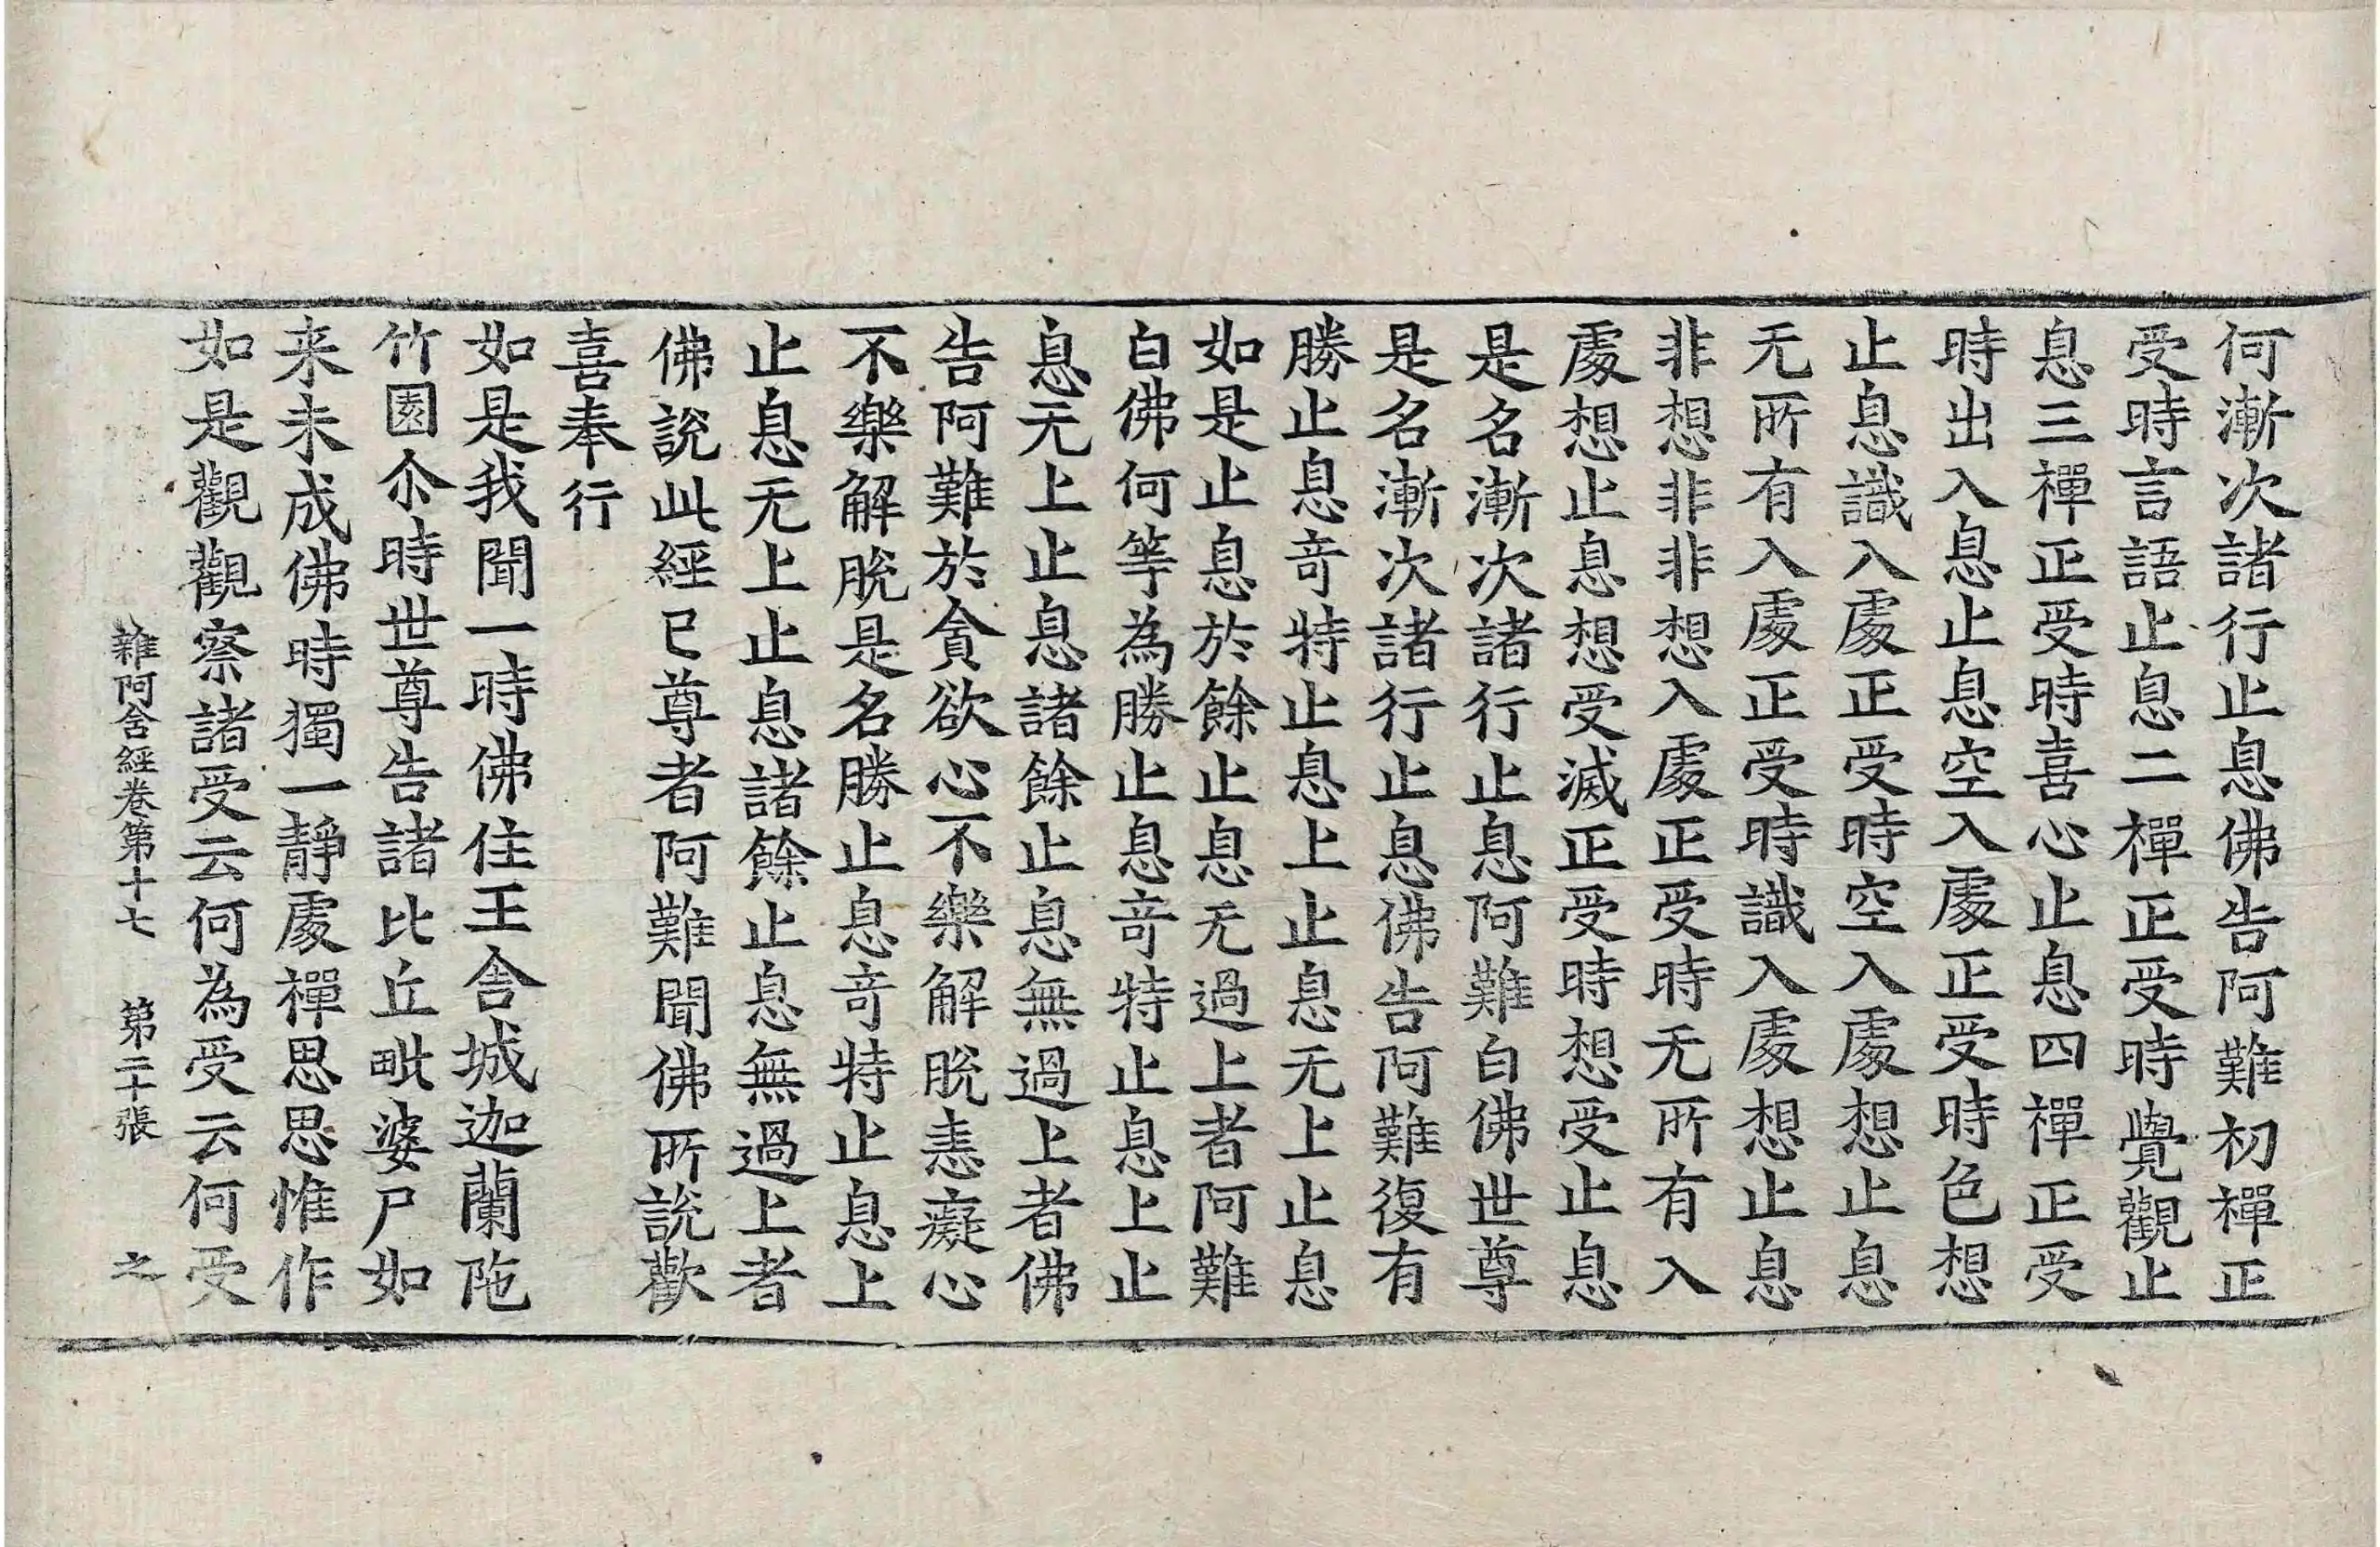 何漸次諸行止息佛告阿難初禪正
受時言語止息二禪正受時覺觀止
息三禪正受時喜心止息四禪正受
時出入息止息空入處正受時色想
止息識入處正受時空入處想止息
无所有入處正受時識入處想止息
非想非非想入處正受時无所有入
處想止息想受滅正受時想受止息
是名漸次諸行止息阿難白佛世尊
是名漸次諸行止息佛告阿難復有
勝止息奇特止息上止息无上止息
如是止息於餘止息无過上者阿難
白佛何等為勝止息奇特止息上止
息无上止息諸餘止息無過上者佛
告阿難於貪欲心不樂解脫恚癡心
不樂解脫是名勝止息奇特止息上
止息无上止息諸餘止息無過上者
佛說此經已尊者阿難聞佛所說歡
喜奉行
如是我聞一時佛住王舍城迦蘭陁
竹園尒時世尊告諸比丘毗婆尸如
来未成佛時獨一靜處禪思思惟作
如是觀觀察諸受云何為受云何受
雜阿含經卷第十七 第二十張 之